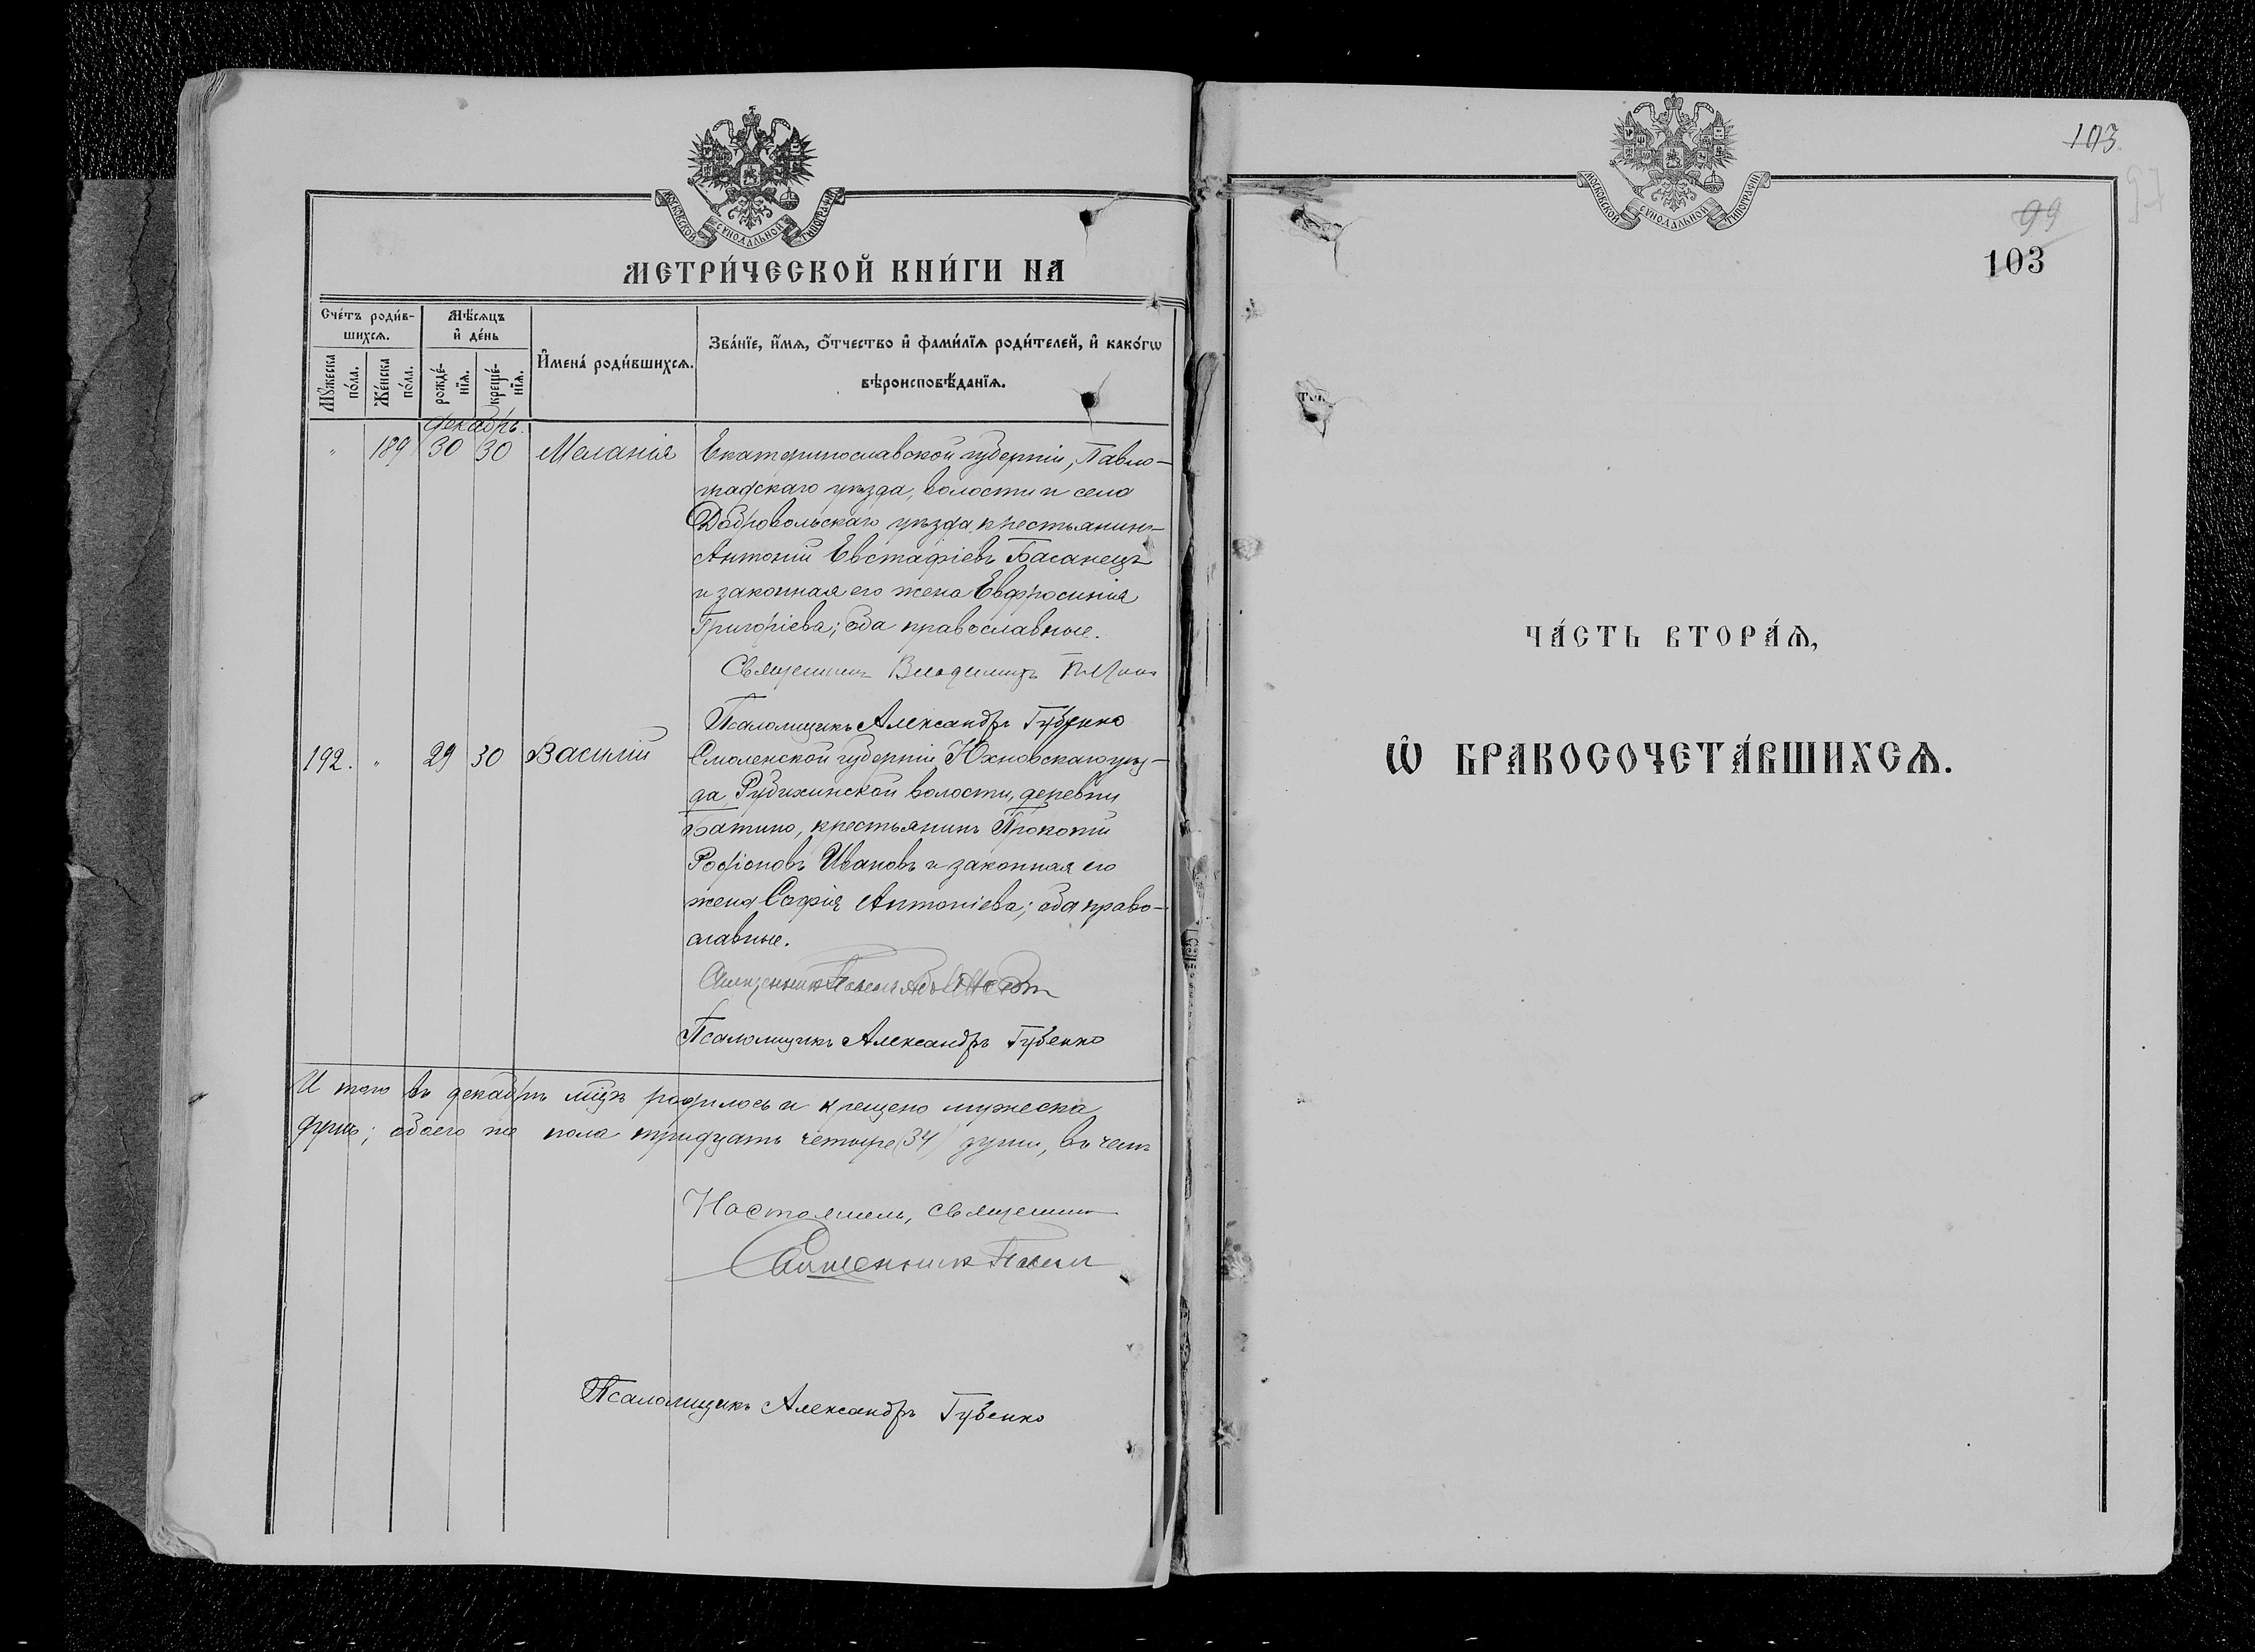 МОСКОВСКОЙ СѴНОДАЛЬНОЙ ТИПОГРАФІИ
МЕТРИ́ЧЕСКОЙ КНИ́ГИ НА
Сче́тъ роди́в-
шихсѧ.
Мѣ́сѧцъ
и҆ де́нь
И҆мена̀ роди́вшихсѧ.
Зва́нїе, и҆́мѧ, ѻ҆́тчество и҆ фами́лїѧ роди́телей, и҆ како́гѡ
вѣроисповѣ́данїѧ.
Мꙋ́жеска
по́ла.
Же́нска
по́ла.
рожде́-
нїѧ.
креще́-
нїѧ.
Декабрь.
" 189 30 30 Меланія Екатеринославской губерніи, Павло-
градскаго уѣзда, волости и села
Добровольскаго уѣзда крестьянинъ
Антоній Евстафіевъ Басанецъ
и законная его жена Евфросинія
Григоріева; оба православные.
Священникъ Владимиръ
Псаломщикъ Александръ Губенко
192. " 29 30 Василій Смоленской губерніи Юхновскаго уѣз-
да, Рубихинской волости, деревни
Батино, крестьянинъ Прокопій
Родіоновъ Ивановъ и законная его
жена Софія Антоніева; оба право-
славные.
Священникъ Павелъ
Псаломщикъ Александръ Губенко
И того въ декабрѣ мцѣ родилось и крещено мужеска
душъ; обоего же пола тридцать четыре (34) души, въ чемъ
Настоятель, священникъ
Священникъ Павелъ
Псаломщикъ Александръ Губенко
МОСКОВСКОЙ СѴНОДАЛЬНОЙ ТИПОГРАФІИ
103
99
97
103
ЧА́СТЬ ВТОРА́Ѧ,
Ѽ БРАКОСОЧЕТА́ВШИХСѦ.